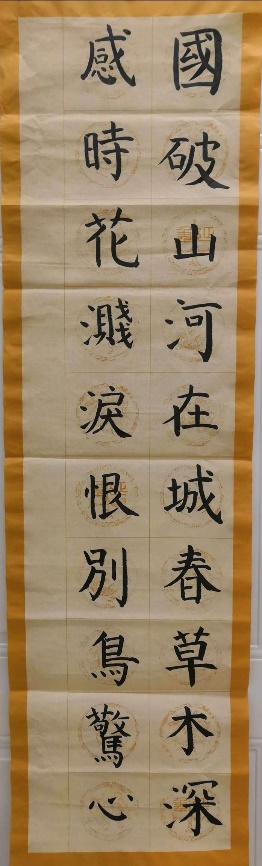 國破山河在城春草木深
感時花濺淚恨別鳥驚心